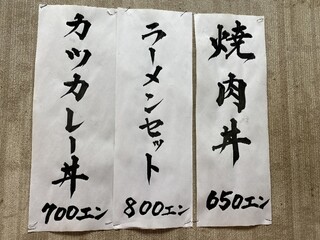 焼肉丼
650エン
ラーメンセット
800エン
カツカレー丼
700エン